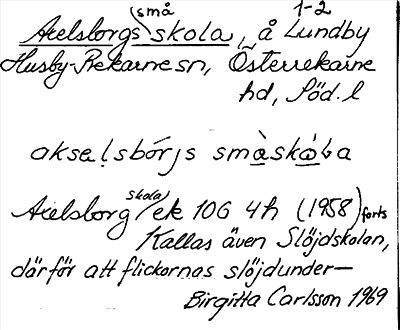 små 1-2
Axelsborgs skola, å Lundby
Husby-Rekarne sn, Österrekarne
hd, Söd. l
aksel̩sbórjs smàskòla
Axelsborg (skola) ek 10G 4h (1958) forts
Kallas även Slöjdskolan,
därför att flickornas slöjdunder—
Birgitta Carlsson 1969